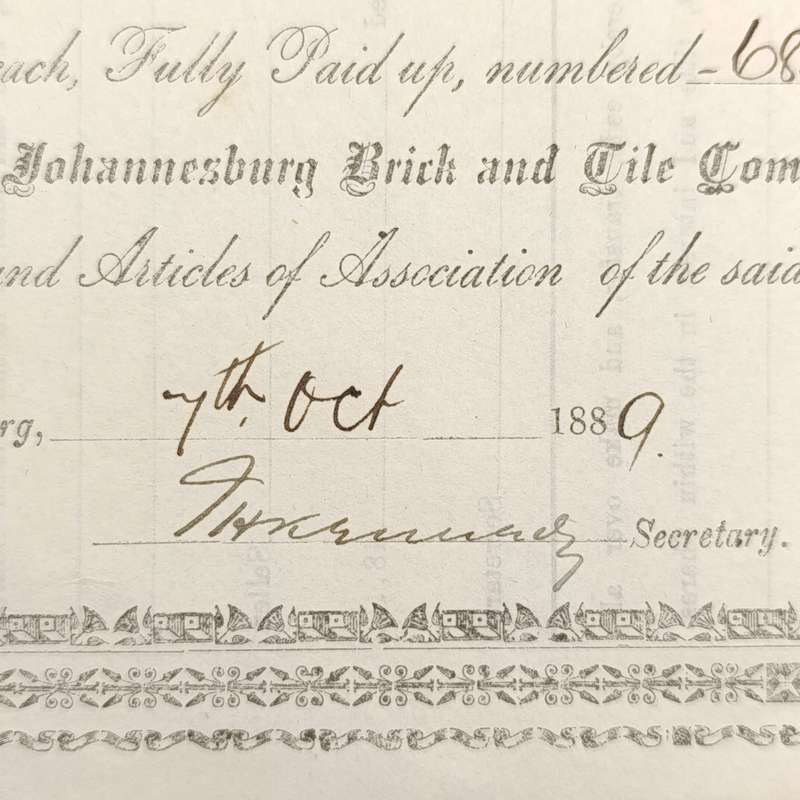 each, Fully Paid up, numbered - 68
Johannesburg Brick and Tile Com
and Articles of Association of the said
rg, 7th. Oct 1889.
THKennedy Secretary.